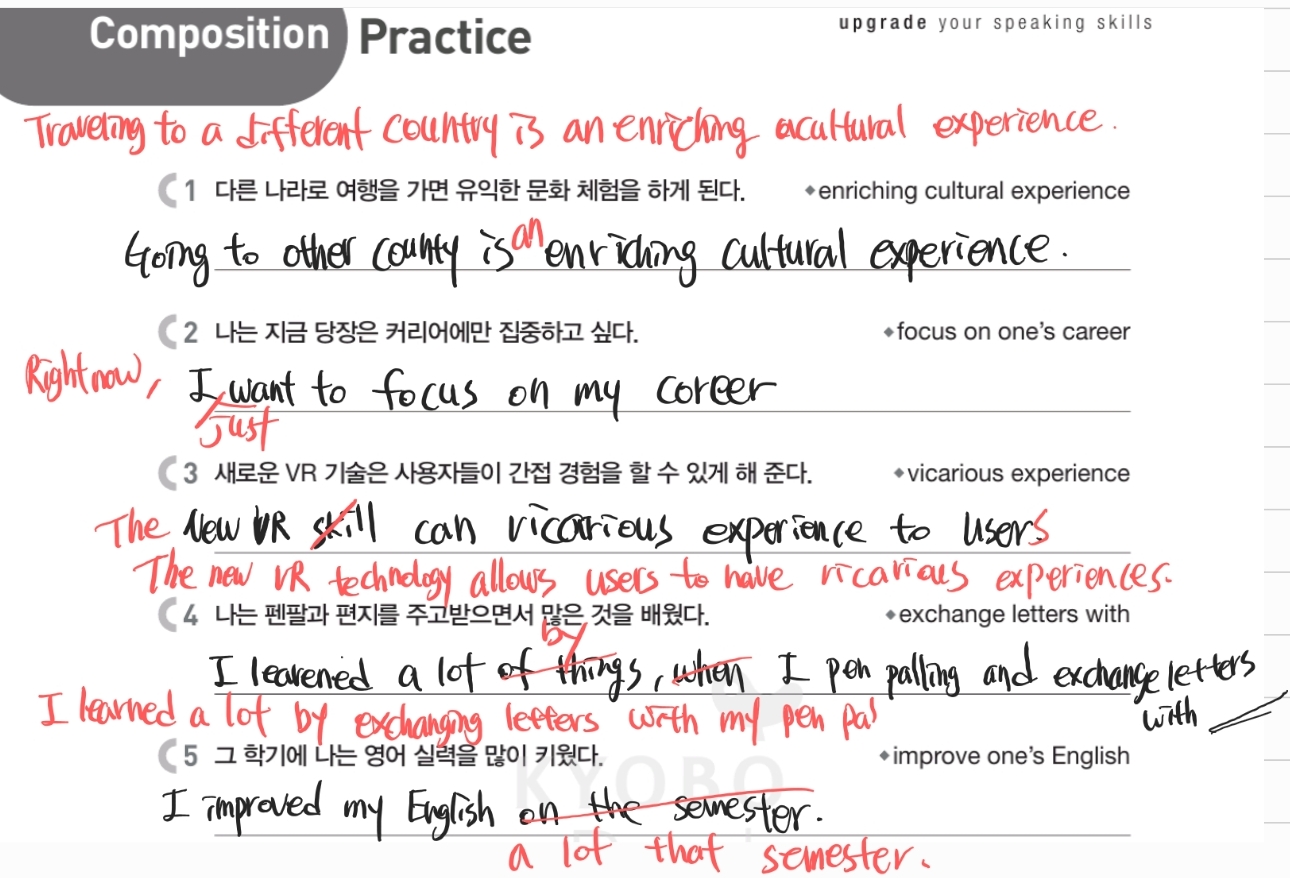 Composition Practice
upgrade your speaking skills
Traveling to a different country is an enriching acultural experience.
1 다른 나라로 여행을 가면 유익한 문화 체험을 하게 된다. ◆enriching cultural experience
Going to other county is an enriching cultural experience.
2 나는 지금 당장은 커리어에만 집중하고 싶다. ◆focus on one's career
Right now, I want to focus on my coreer
Just
3 새로운 VR 기술은 사용자들이 간접 경험을 할 수 있게 해 준다. ◆vicarious experience
The New VR skill can vicarious experience to users
The new VR technology allows users to have vicarious experiences.
4 나는 펜팔과 편지를 주고받으면서 많은 것을 배웠다. ◆exchange letters with
by
I learened a lot of things, when I pen palling and exchange letters
with
I learned a lot by exchanging letters with my pen pal
5 그 학기에 나는 영어 실력을 많이 키웠다. ◆improve one's English
KYOBO
I improved my English on the semester.
a lot that semester.